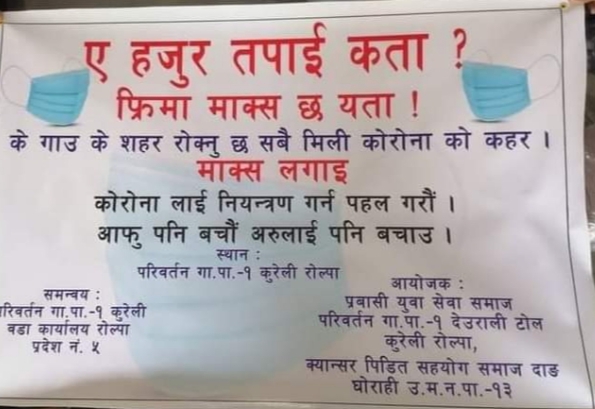 ए हजुर तपाई कता ?
फ्रिमा माक्स छ यता !
के गाउ के शहर रोक्नु छ सबै मिली कोरोना को कहर ।
माक्स लगाइ
कोरोना लाई नियन्त्रण गर्न पहल गरौं ।
आफु पनि बचौं अरुलाई पनि बचाउ ।
स्थान :
परिवर्तन गा.पा.-१ कुरेली रोल्पा
समन्वय :
परिवर्तन गा.पा.-१ कुरेली
वडा कार्यालय रोल्पा
प्रदेश नं. ५
आयोजक :
प्रबासी युवा सेवा समाज
परिवर्तन गा.पा.-१ देउराली टोल
कुरेली रोल्पा,
क्यान्सर पिडित सहयोग समाज दाङ
घोराही उ.म.न.पा.-१३